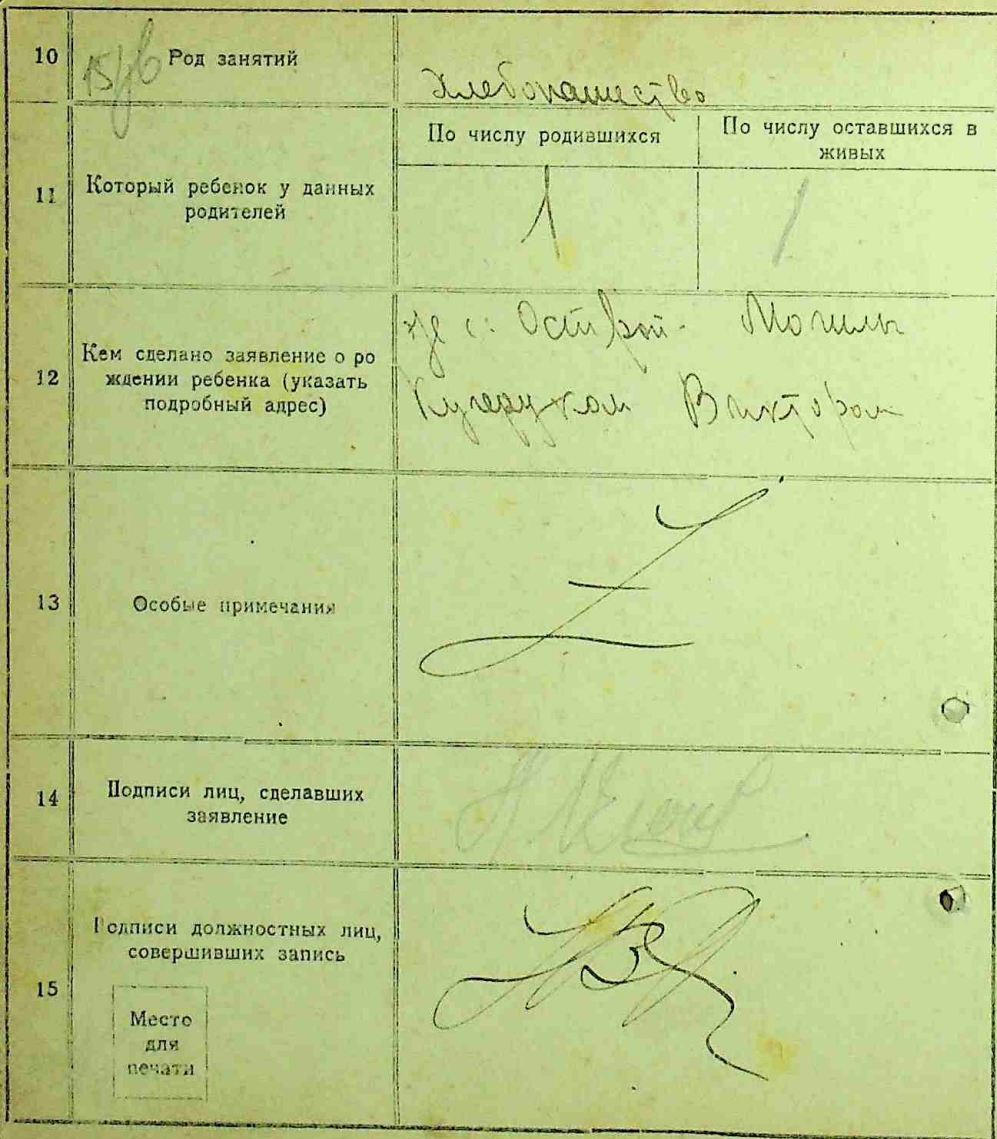 10 Род занятий Хлебопашество
По числу родившихся По числу оставшихся в
живых
11 Который ребенок у данных
родителей
1 1
12 Кем сделано заявление о ро
ждении ребенка (указать
подробный адрес)
с. Острой Могилы
Кучеруком Виктором
13 Особые примечания
14 Подписи лиц, сделавших
заявление
15 Подписи должностных лиц,
совершивших запись
Место
для
печати